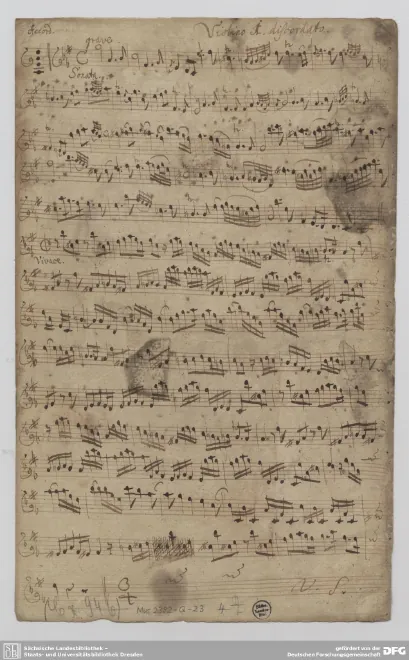 grave
Violino 1. discordato.
Sonata
Vivace.
V. S.
Mus. 2392-Q-23
4
Sächsische Landesbibliothek –
Staats- und Universitätsbibliothek Dresden
gefördert von der
Deutschen Forschungsgemeinschaft
DFG